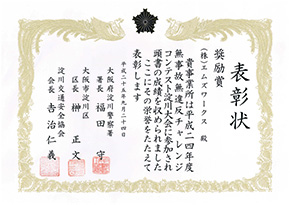 表彰状
奨励賞
(株)エムズワークス 殿
貴事業所は平成二四年度
無事故無違反チャレンジ
コンテスト淀川大会に参加され
頭書の成績を収められました
ここにその栄誉をたたえて
表彰します
平成二十五年九月二十四日
大阪府淀川警察署
署長 福田 守
大阪市淀川区
区長 榊 正文
淀川交通安全協会
会長 吉治仁義